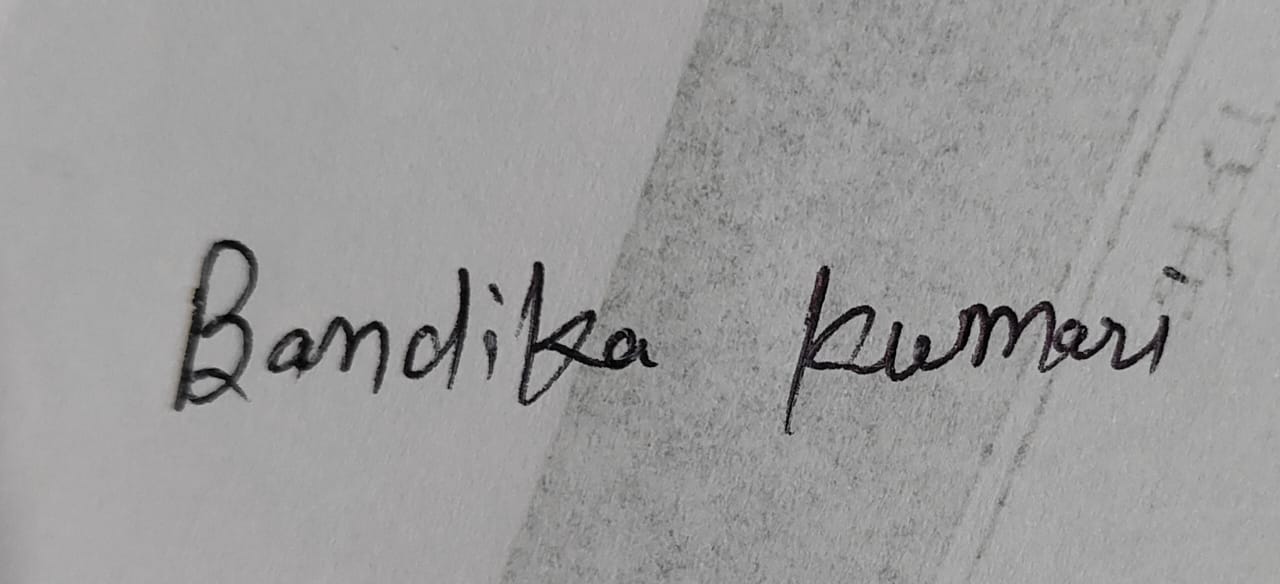 Bandika kumari